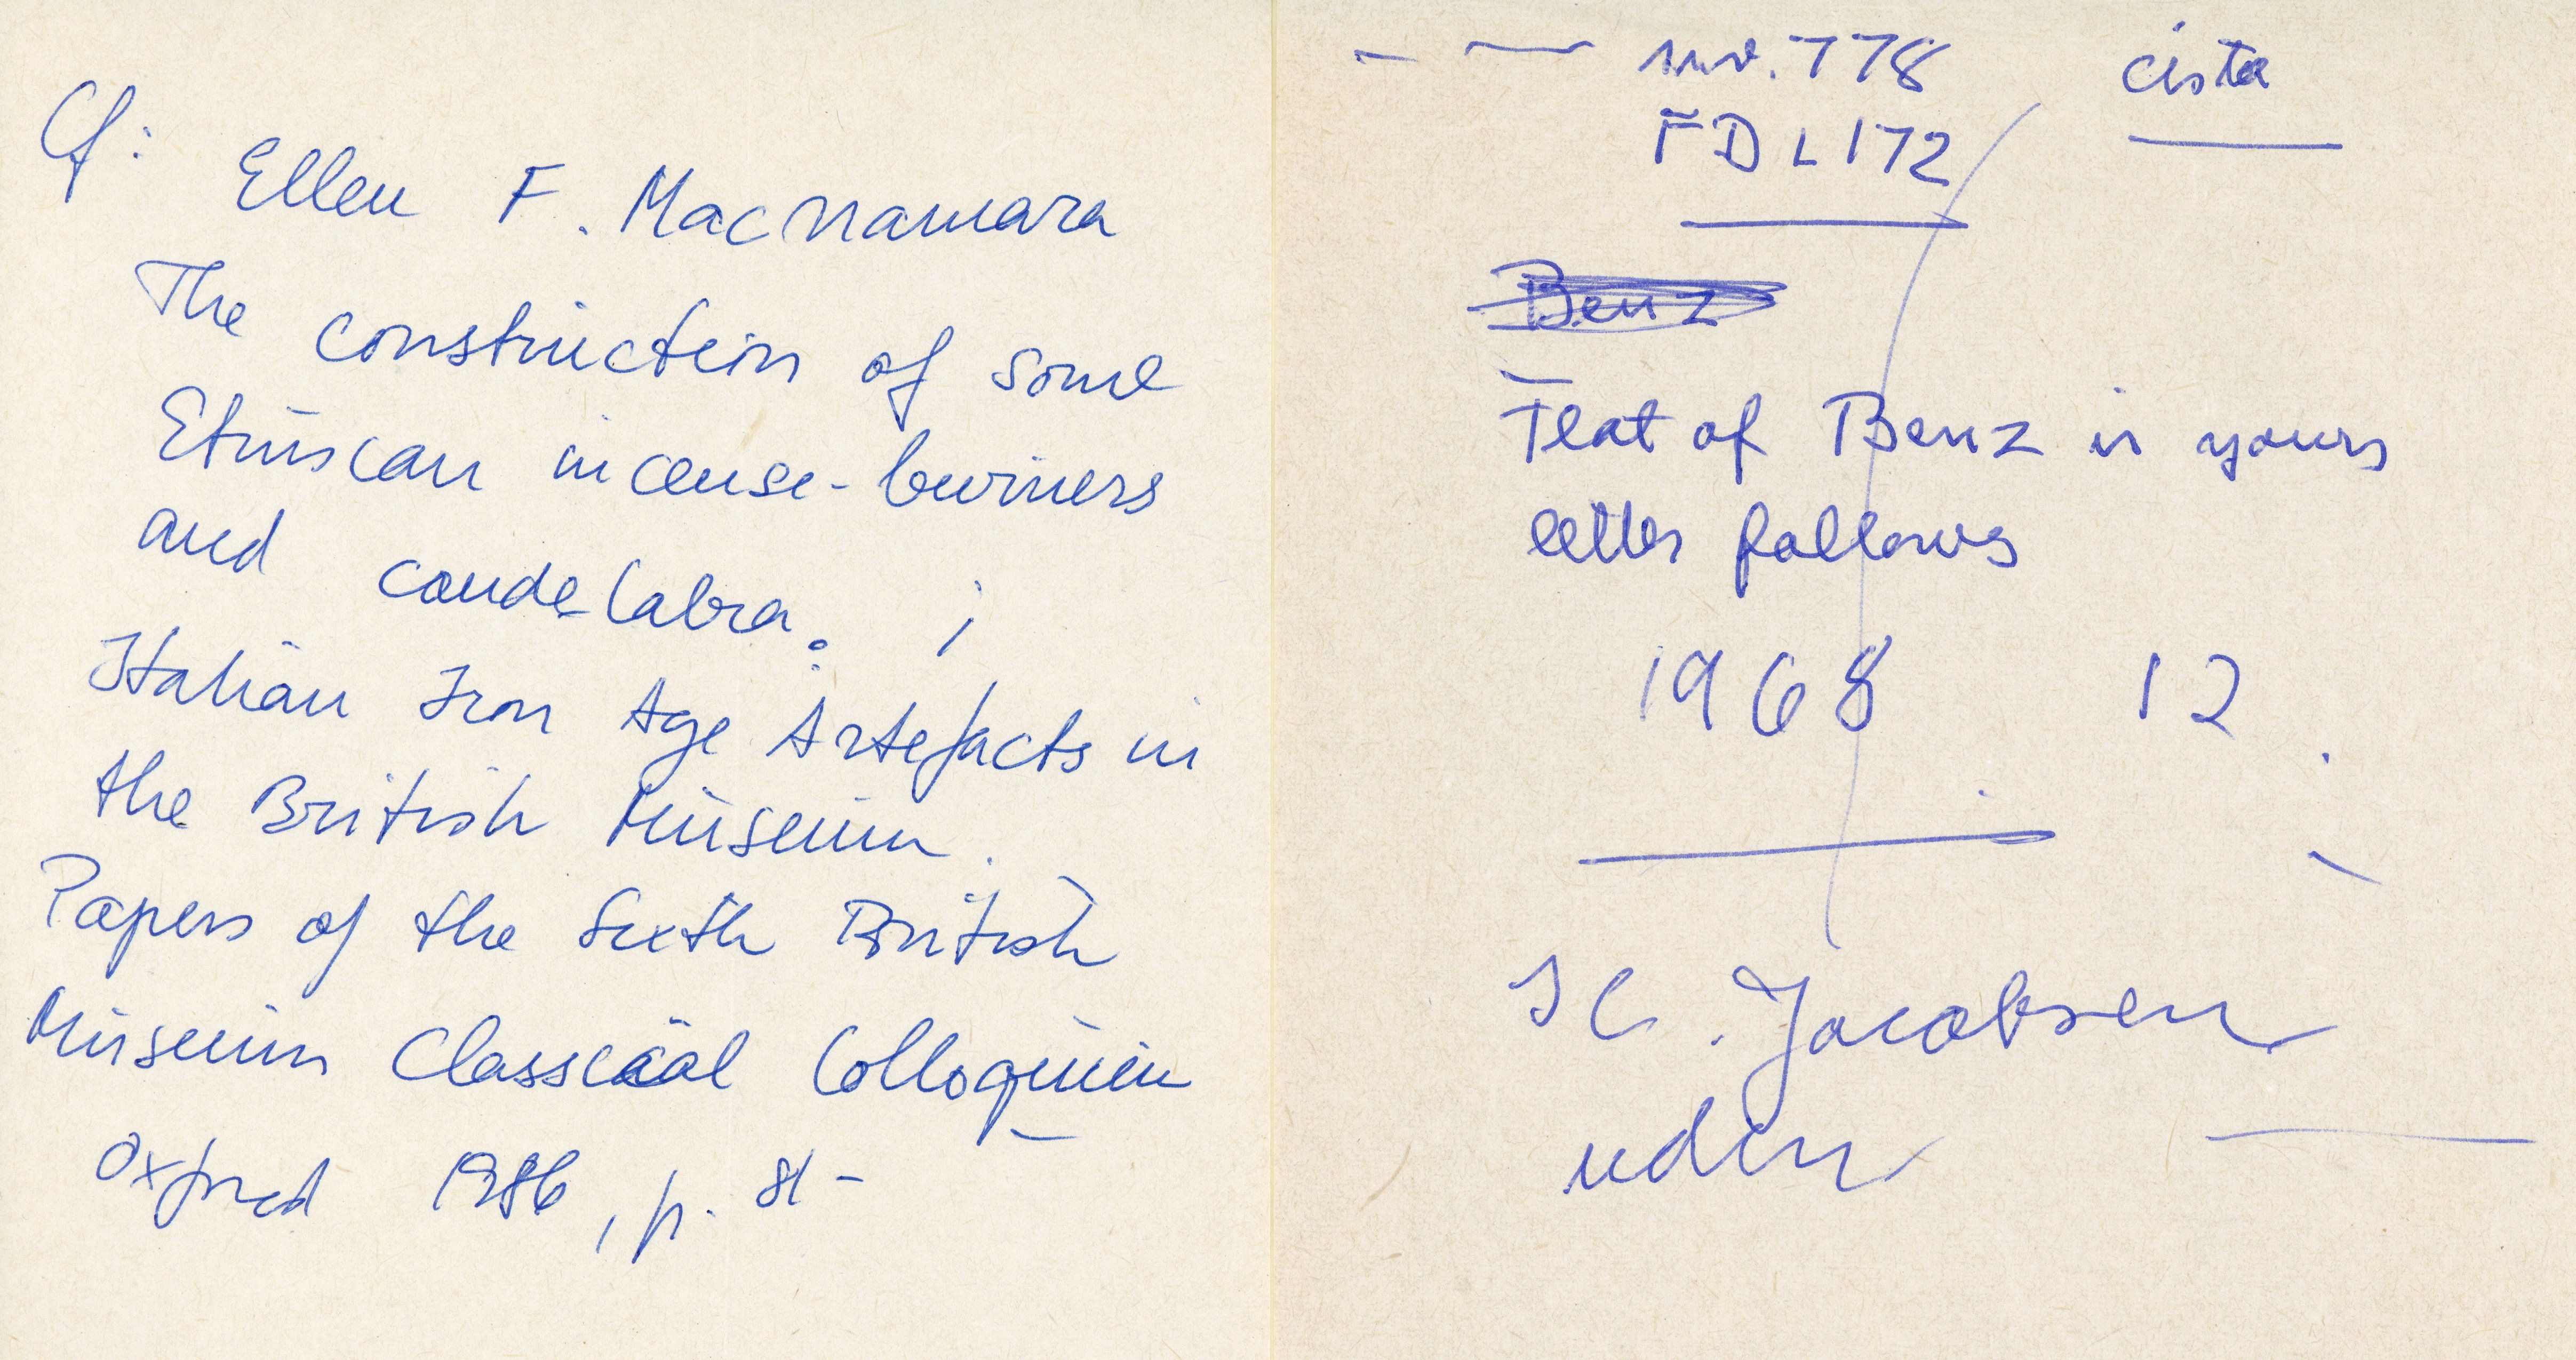 Cf:
Ellen F. Macnamara
The construction of some
Etruscan incense-burners
and candelabra. i
Italian Iron Age Artefacts in
the British Museum.
Papers of the Sixth British
Museum Classical Colloquium
Oxford 1986, p. 81-
inv. 778 cista
FDL172
Benz
of Benz is yours
letter follows
1968 12.
Jacobsen
uden